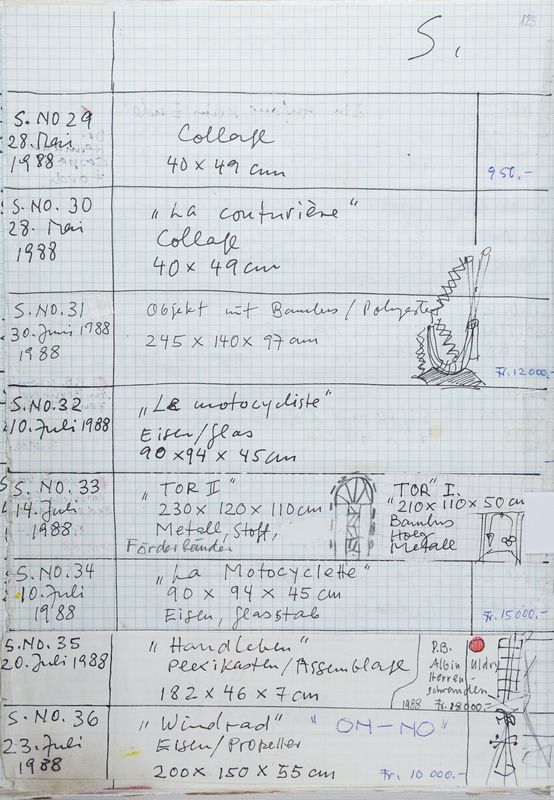 125
S.
S. NO 29
28. Mai
1988
Collage
40 x 49 cm
950.-
S. NO. 30
28. Mai
1988
"La couturière"
Collage
40 x 49 cm
S. NO. 31
30. Juni 1988
1988
Objekt mit Bambus / Polyester
245 x 140 x 97 cm
Fr. 12000.-
S. NO. 32
10. Juli 1988
"Le motocycliste"
Eisen/glas
90 x 94 x 45 cm
S. NO. 33
14. Juli
1988
"TOR II"
230 x 120 x 110 cm
Metall, Stoff,
Förderbänder
"TOR" I.
210 x 110 x 50 cm
Bambus
Holz
Metall
S. NO. 34
10. Juli
1988
"La Motocyclette"
90 x 94 x 45 cm
Eisen, glasstab
Fr. 15000.-
S. NO. 35
20. Juli 1988
"Handleben"
Plexikasten/Assemblage
182 x 46 x 7 cm
P.B.
Albin Uldry
Herren-
schwanden
1988 Fr. 18000.-
S. NO. 36
23. Juli
1988
"Windrad" "OH-NO"
Eisen/Propeller
200 x 150 x 55 cm
Fr. 10 000.-